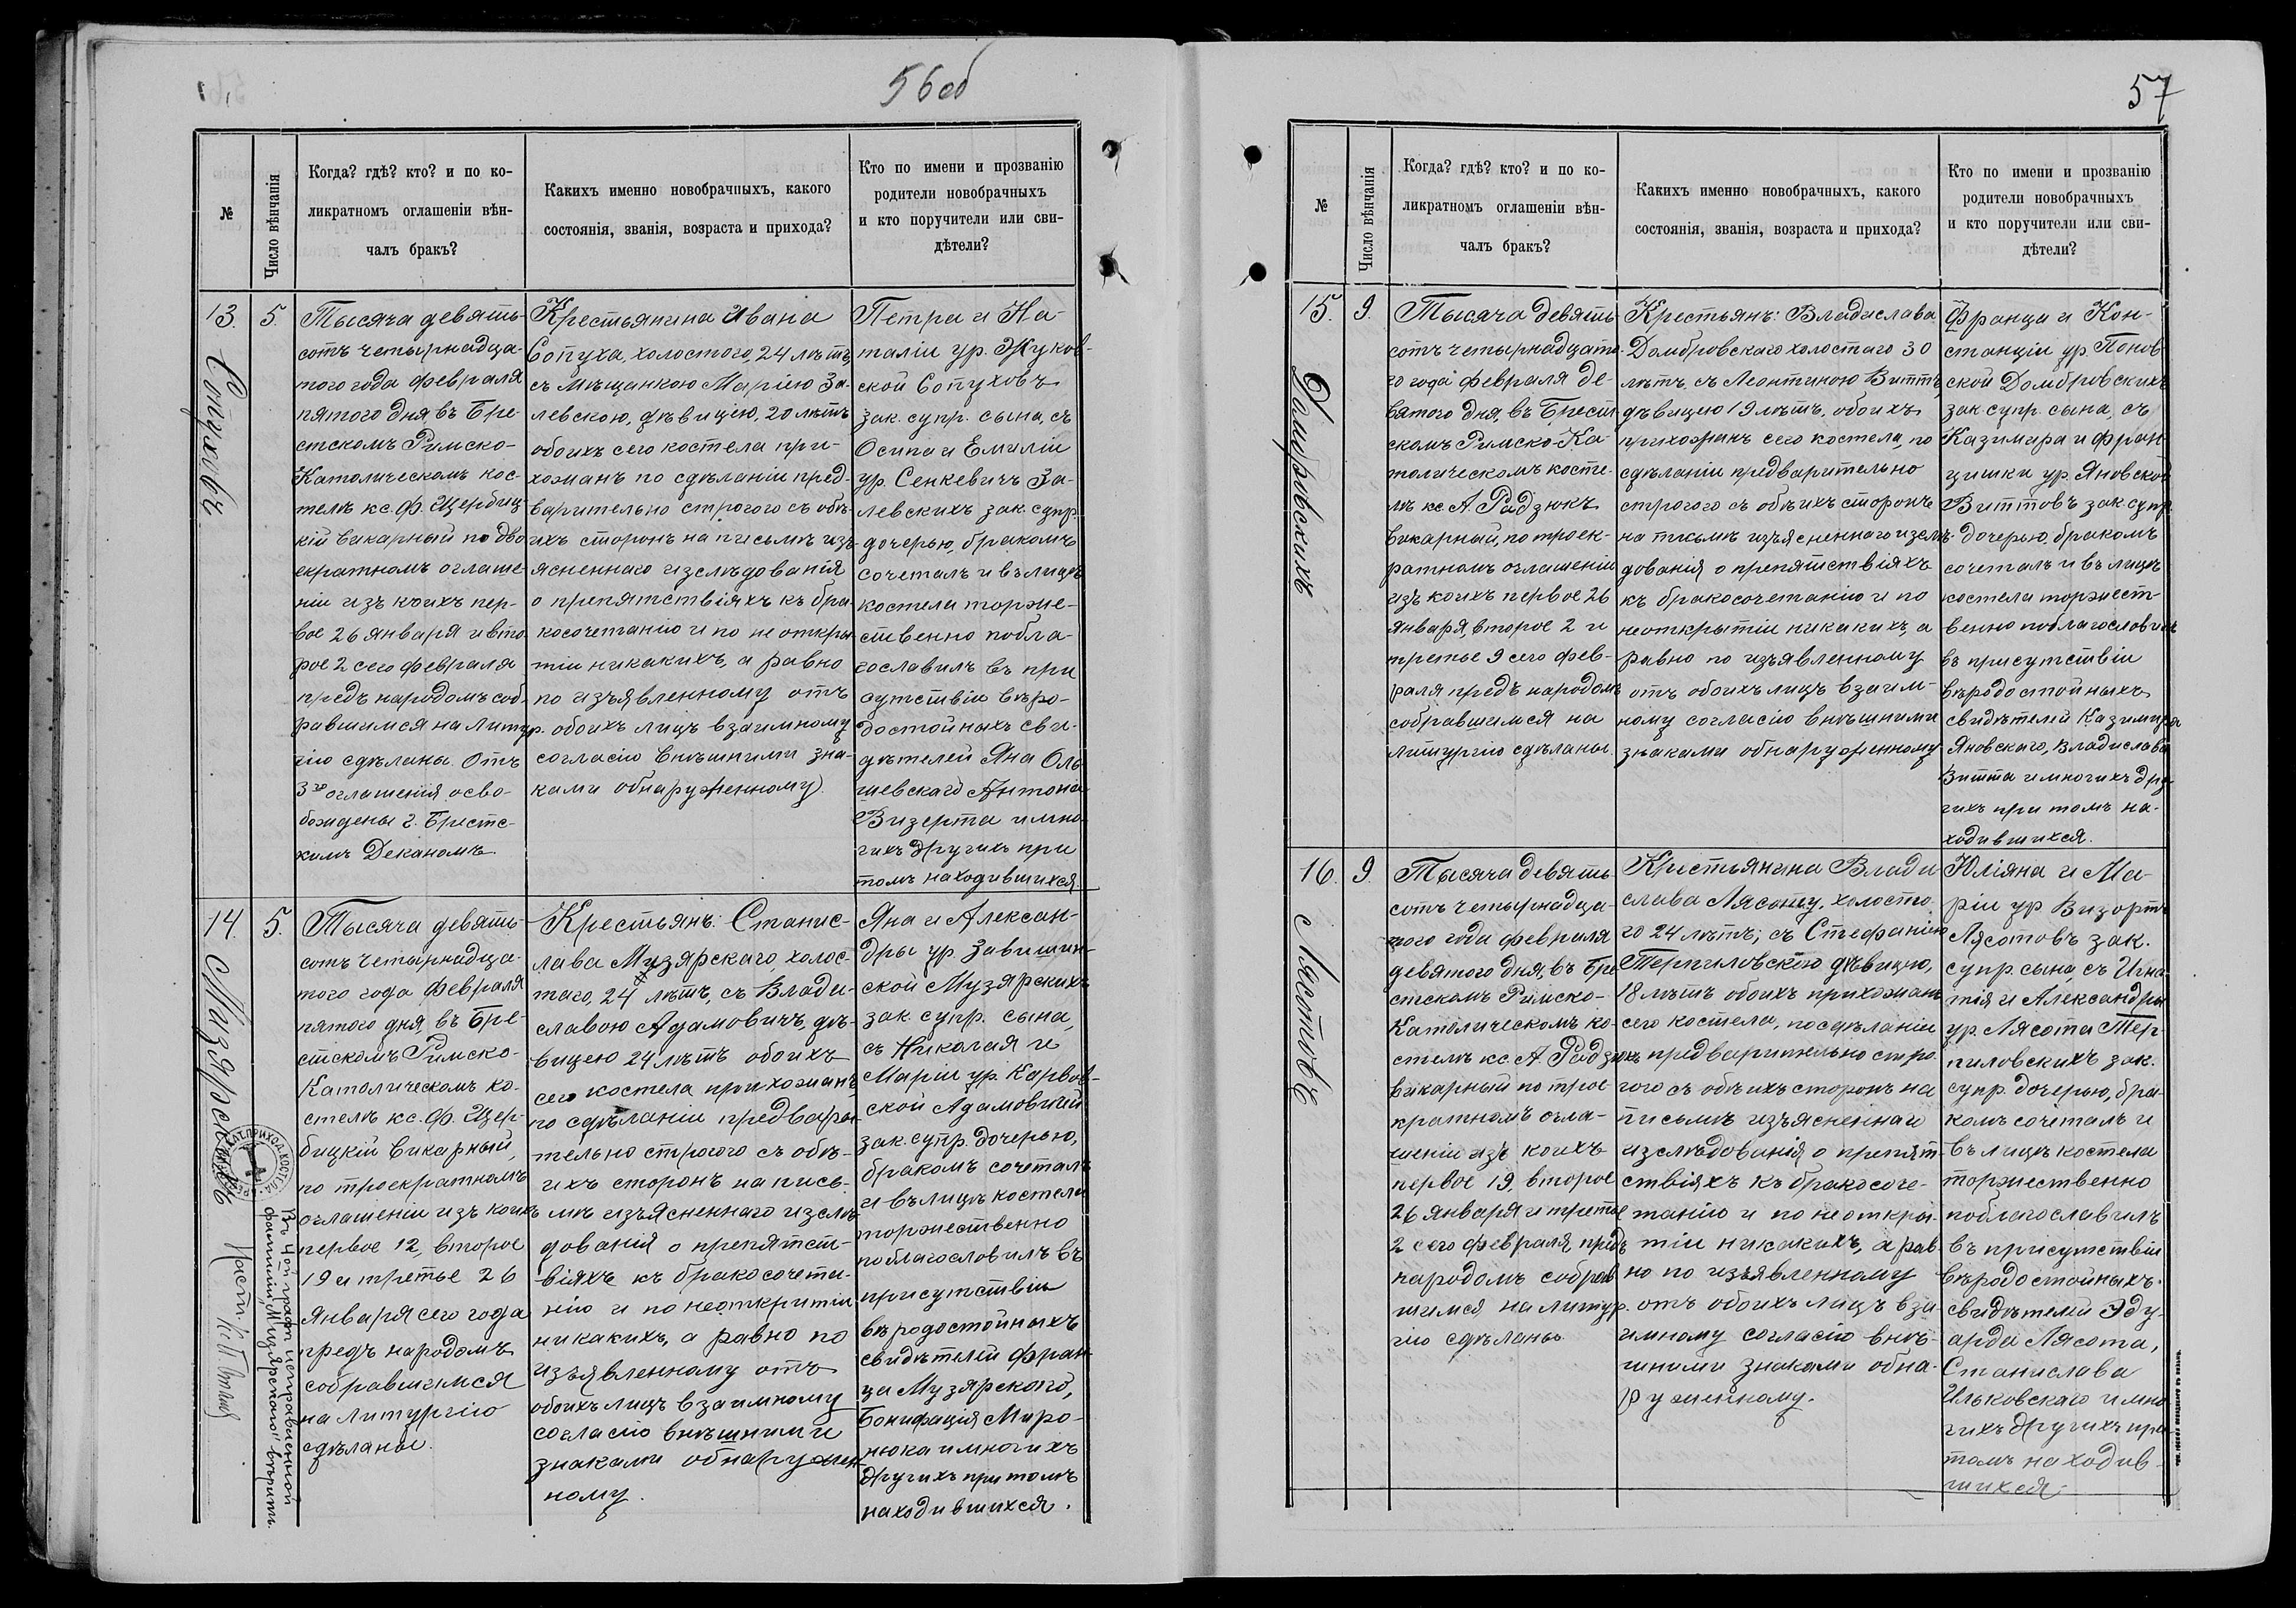 56 об
№
Число вѣнчанія
Когда? гдѣ? кто? и по ко-
ликратномъ оглашеніи вѣн-
чалъ бракъ?
Какихъ именно новобрачныхъ, какого
состоянія, званія, возраста и прихода?
Кто по имени и прозванію
родители новобрачныхъ
и кто поручители или сви-
дѣтели?
13.
Сопуховъ
5.
Тысяча девять-
сотъ четырнадца-
того года февраля
пятого дня въ Бре-
стскомъ Римско-
Католическомъ кос-
телѣ кс. Ф. Щербиц-
кій викарный по дво-
екратномъ оглаше-
ніи изъ коихъ пер-
вое 26 января и вто-
рое 2 сего февраля
предъ народомъ соб-
равшимся на литур-
гію сдѣланы. Отъ
3го оглашенія осво-
бождены г. Брестс-
кимъ Деканомъ
Крестьянина Ивана
Сопуха, холостого, 24 лѣтъ,
съ мѣщанкою Маріею За-
левскою, дѣвицею, 20 лѣтъ
обоихъ сего костела при-
хожанъ по сдѣланіи пред-
варительно строгого съ обѣ-
ихъ сторонъ на письмѣ изъ-
ясненнаго изслѣдованія
о препятствіяхъ къ бра-
косочетанію и по не откры-
тіи никакихъ, а равно
по изъявленному отъ
обоихъ лицъ взаимному
согласію внѣшними зна-
ками обнаруженному.
Петра и На-
таліи ур. Жуков-
ской Сопуховъ
зак. супр. сына, съ
Осипа и Емиліи
ур. Сенкевичъ За-
левскихъ зак. супр.
дочерью, бракомъ
сочеталъ и въ лицѣ
костела торже-
ственно побла-
гославилъ въ при
сутствіи вѣро-
достойныхъ сви-
дѣтелей Яна Оль-
шевскаго Антона
Визерта и мно-
гихъ другихъ при
томъ находившихся
14.
Музярскихъ
5.
Тысяча девять-
сотъ четырнадца-
того года февраля
пятого дня, въ Бре-
стскомъ Римско-
Католическомъ ко-
стелѣ кс. Ф. Щер-
бицкій викарный,
по троекратномъ
оглашеніи изъ коихъ
первое 12, второе
19 и третье 26
января сего года
предъ народомъ
собравшимся
на литургію
сдѣланы.
Крестьянъ: Станис-
лава Музярскаго, холос-
таго, 24 лѣтъ, съ Влади-
славою Адамовичъ, дѣ-
вицею 24 лѣтъ обоихъ
сего костела прихожанъ,
по сдѣланіи предвари-
тельно строгого съ обѣ-
ихъ сторонъ на пись-
мѣ изъясненнаго изслѣ-
дованія о препятст-
віяхъ къ бракосочета-
нію и по неоткрытіи
никакихъ, а равно по
изъявленному отъ
обоихъ лицъ взаимному
согласію внѣшними
знаками обнаружен-
ному.
Яна и Алексан-
дры ур. Завишин-
ской Музярскихъ
зак. супр. сына,
съ Николая и
Маріи ур. Карвов-
ской Адамовичей
зак. супр. дочерью,
бракомъ сочеталъ
и въ лицѣ костела
торжественно
поблагословилъ въ
присутствіи
вѣродостойныхъ
свидѣтелей Фран-
ца Музярскаго,
Бонифація Миро-
нюка и многихъ
другихъ при томъ
находившихся.
Въ 4ой графѣ исправленной
фамиліи „Музярскаго" вѣрить.
57
№
Число вѣнчанія
Когда? гдѣ? кто? и по ко-
ликратномъ оглашеніи вѣн-
чалъ бракъ?
Какихъ именно новобрачныхъ, какого
состоянія, званія, возраста и прихода?
Кто по имени и прозванію
родители новобрачныхъ
и кто поручители или сви-
дѣтели?
15.
Домбровскихъ
9.
Тысяча девять-
сотъ четырнадцато-
го года февраля де-
вятого дня, въ Брест-
скомъ Римско-Ка-
толическомъ косте-
лѣ кс. А. Радзюкъ
викарный, по троек-
ратномъ оглашеніи
изъ коихъ первое 26
января, второе 2 и
третье 9 сего фев-
раля предъ народомъ
собравшимся на
литургію сдѣланы.
Крестьянъ: Владислава
Домбровскаго холостаго 30
лѣтъ, съ Леонтиною Виттъ,
дѣвицею 19 лѣтъ, обоихъ
прихожанъ сего костела, по
сдѣланіи предварительно
строгого съ обѣихъ сторонъ
на письмѣ изъясненнаго изслѣ-
дованія о препятствіяхъ
къ бракосочетанію и по
неоткрытіи никакихъ, а
равно по изъявленному
отъ обоихъ лицъ взаим-
ному согласію внѣшними
знаками обнаруженному
Франца и Кон-
станціи ур. Понов-
ской Домбровскихъ
зак. супр. сына, съ
Казимира и Фран-
цишки ур. Яновской
Виттовъ зак. супр.
дочерью, бракомъ
сочеталъ и въ лицѣ
костела торжест-
венно поблагословилъ
въ присутствіи
вѣродостойныхъ
свидѣтелей Казимира
Яновскаго, Владислава
Витта и многихъ дру-
гихъ при томъ на-
ходившихся.
16.
Лясотовъ
9.
Тысяча девять-
сотъ четырнадца-
того года февраля
девятого дня, въ Бре-
стскомъ Римско-
Католическомъ ко-
стелѣ кс. А. Радзюкъ
викарный по трое
кратномъ огла-
шеніи изъ коихъ
первое 19, второе
26 января и третье
2 сего февраля, предъ
народомъ собрав-
шимся на литур-
гію сдѣланы.
Крестьянина Влади
слава Лясоту, холосто-
го 24 лѣтъ; съ Стефаніею
Терпиловскою дѣвицею,
18 лѣтъ обоихъ прихожанъ
сего костела, по сдѣланіи
предварительно стро-
гого съ обѣихъ сторонъ на
письмѣ изъясненнаго
изслѣдованія о препят-
ствіяхъ къ бракосоче-
танію и по неоткры-
тіи никакихъ, а рав-
но по изъявленному
отъ обоихъ лицъ вза-
имному согласію внѣ-
шними знаками обна-
руженному.
Юліяна и Ма-
ріи ур. Визортъ
Лясотовъ зак.
супр. сына, съ Игна-
тія и Александры
ур. Лясота Тер-
пиловскихъ зак.
супр. дочерью, бра-
комъ сочеталъ и
въ лицѣ костела
торжественно
поблагославилъ
въ присутствіи
вѣродостойныхъ
свидѣтелей Эду-
арда Лясота,
Станислава
Ильковскаго и мно-
гихъ другихъ при
томъ находив-
шихся.